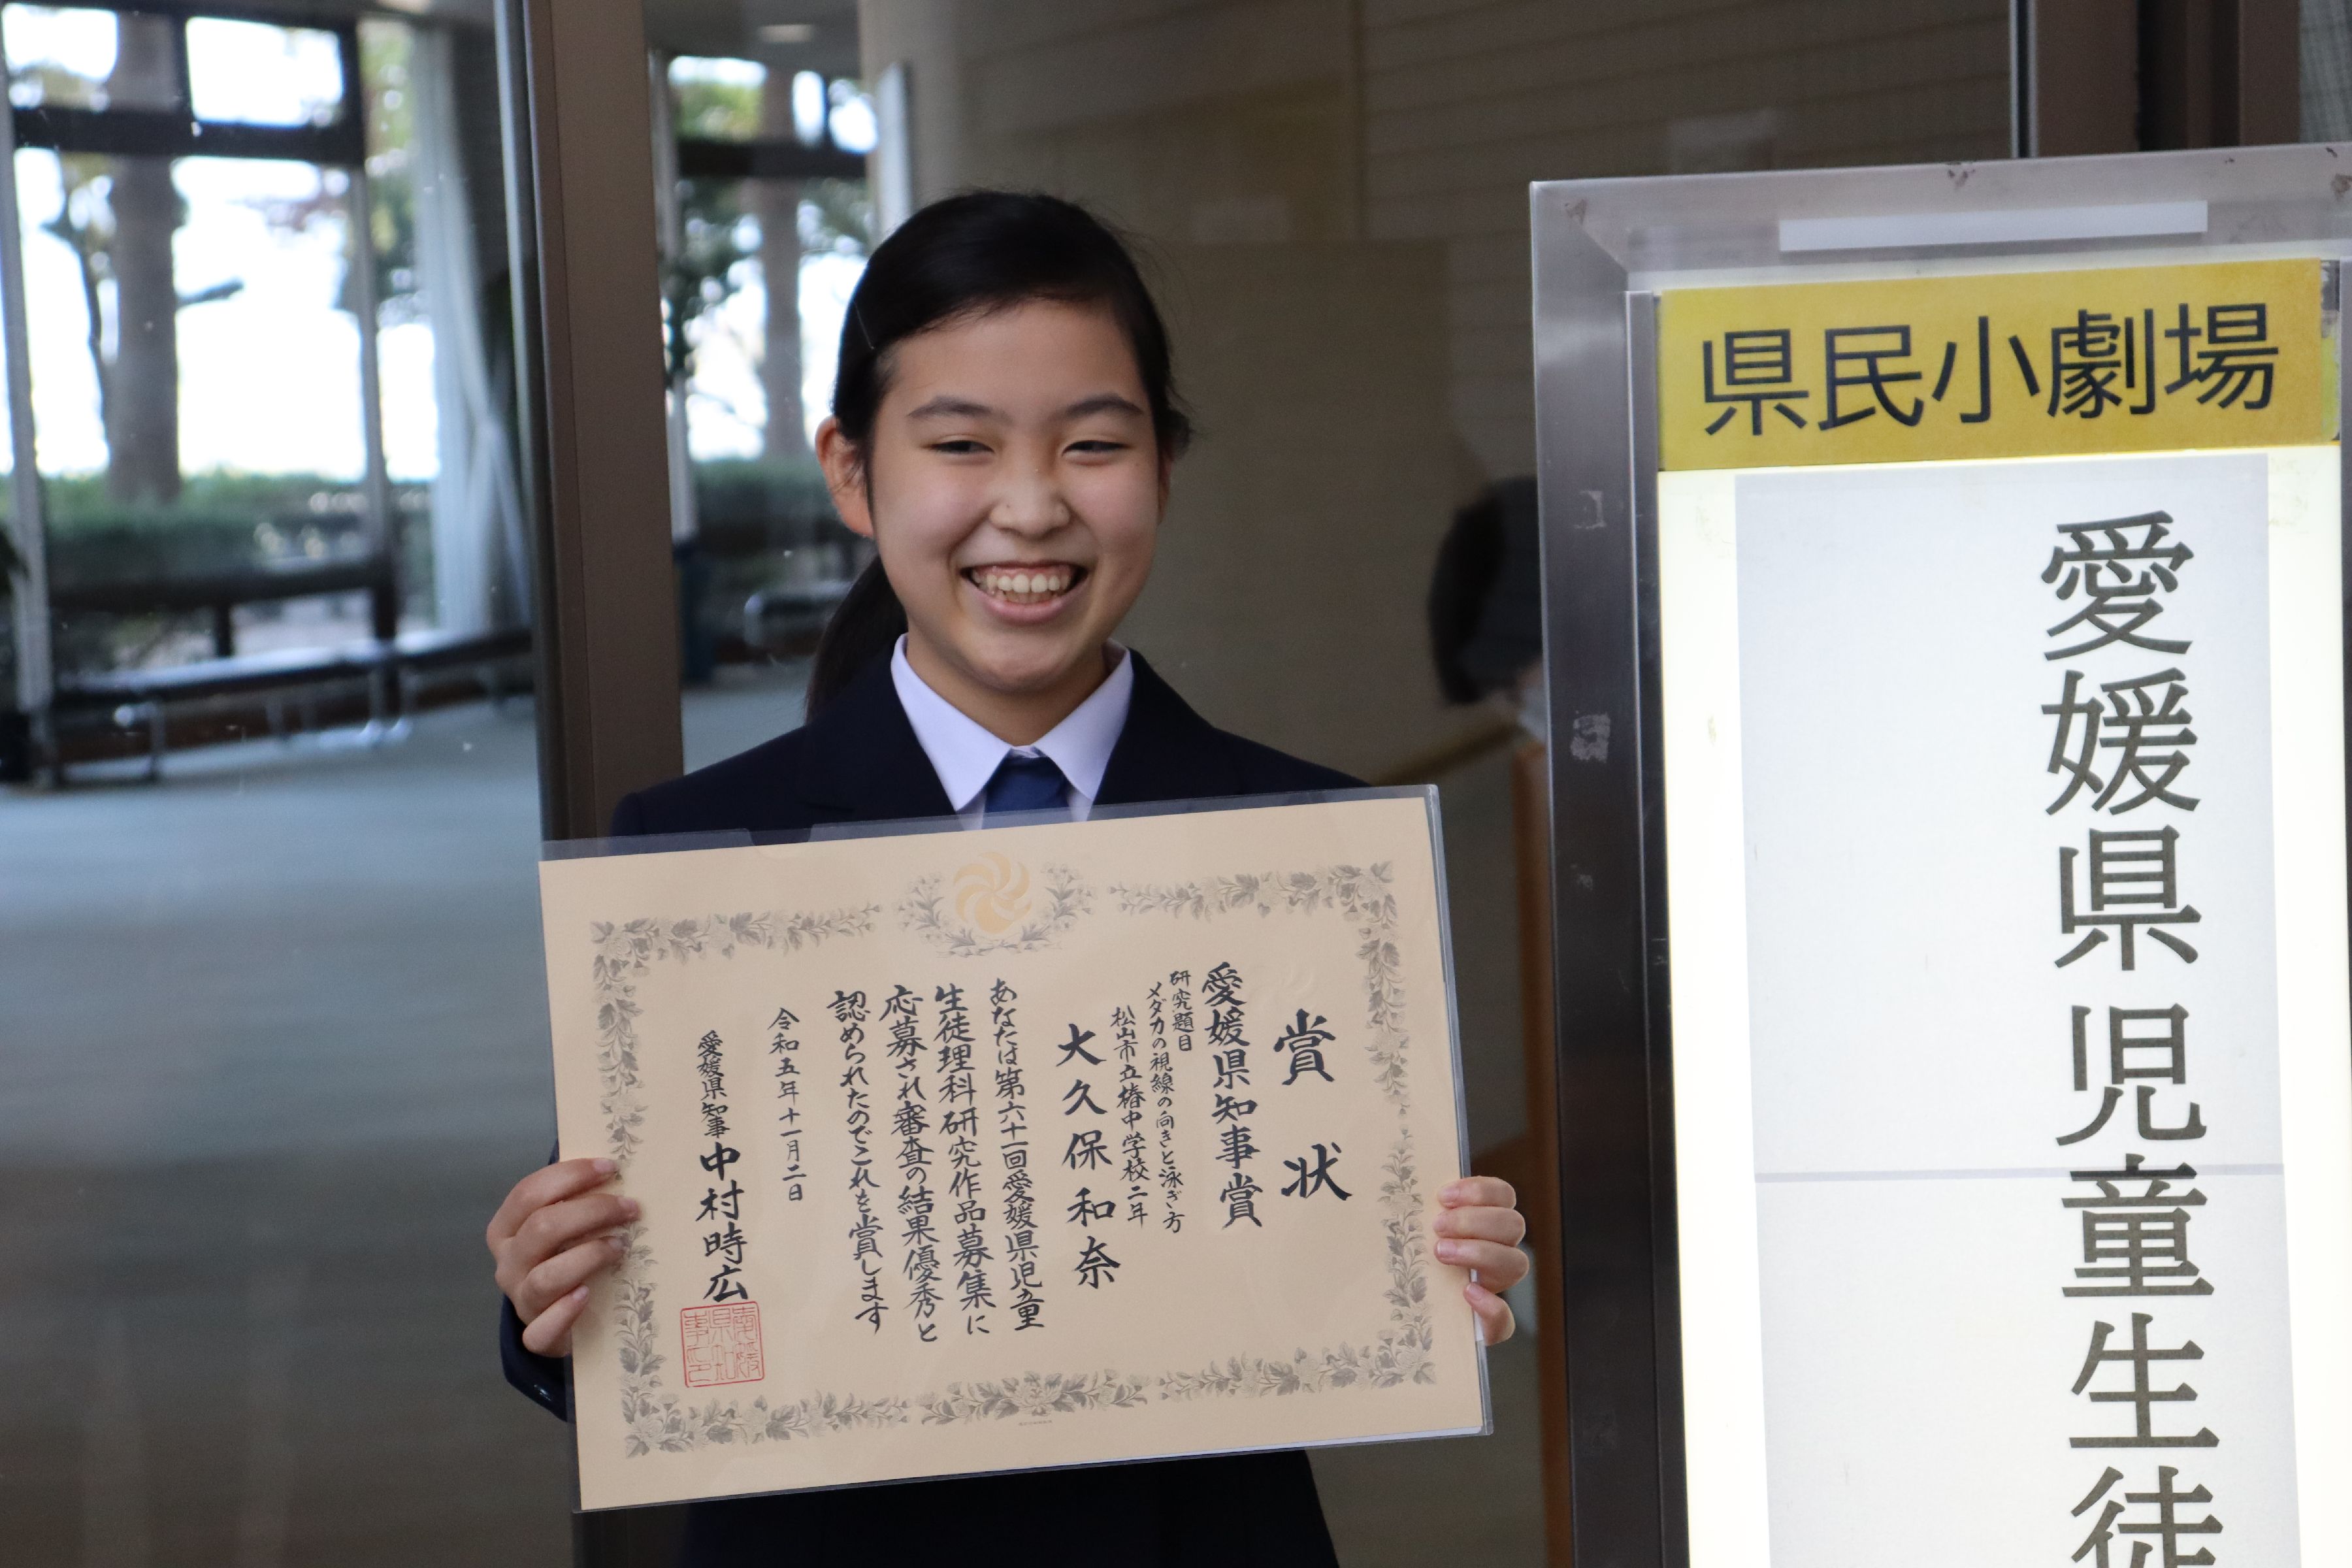 県民小劇場
愛媛県 児童生徒
賞状
愛媛県知事賞
研究題目
メダカの視線の向きと泳ぎ方
松山市立椿中学校二年
大久保和奈
あなたは第六十一回愛媛県児童
生徒理科研究作品募集に
応募され審査の結果優秀と
認められたのでこれを賞します
令和五年十一月二日
愛媛県知事 中村時広
愛媛
県知
事印